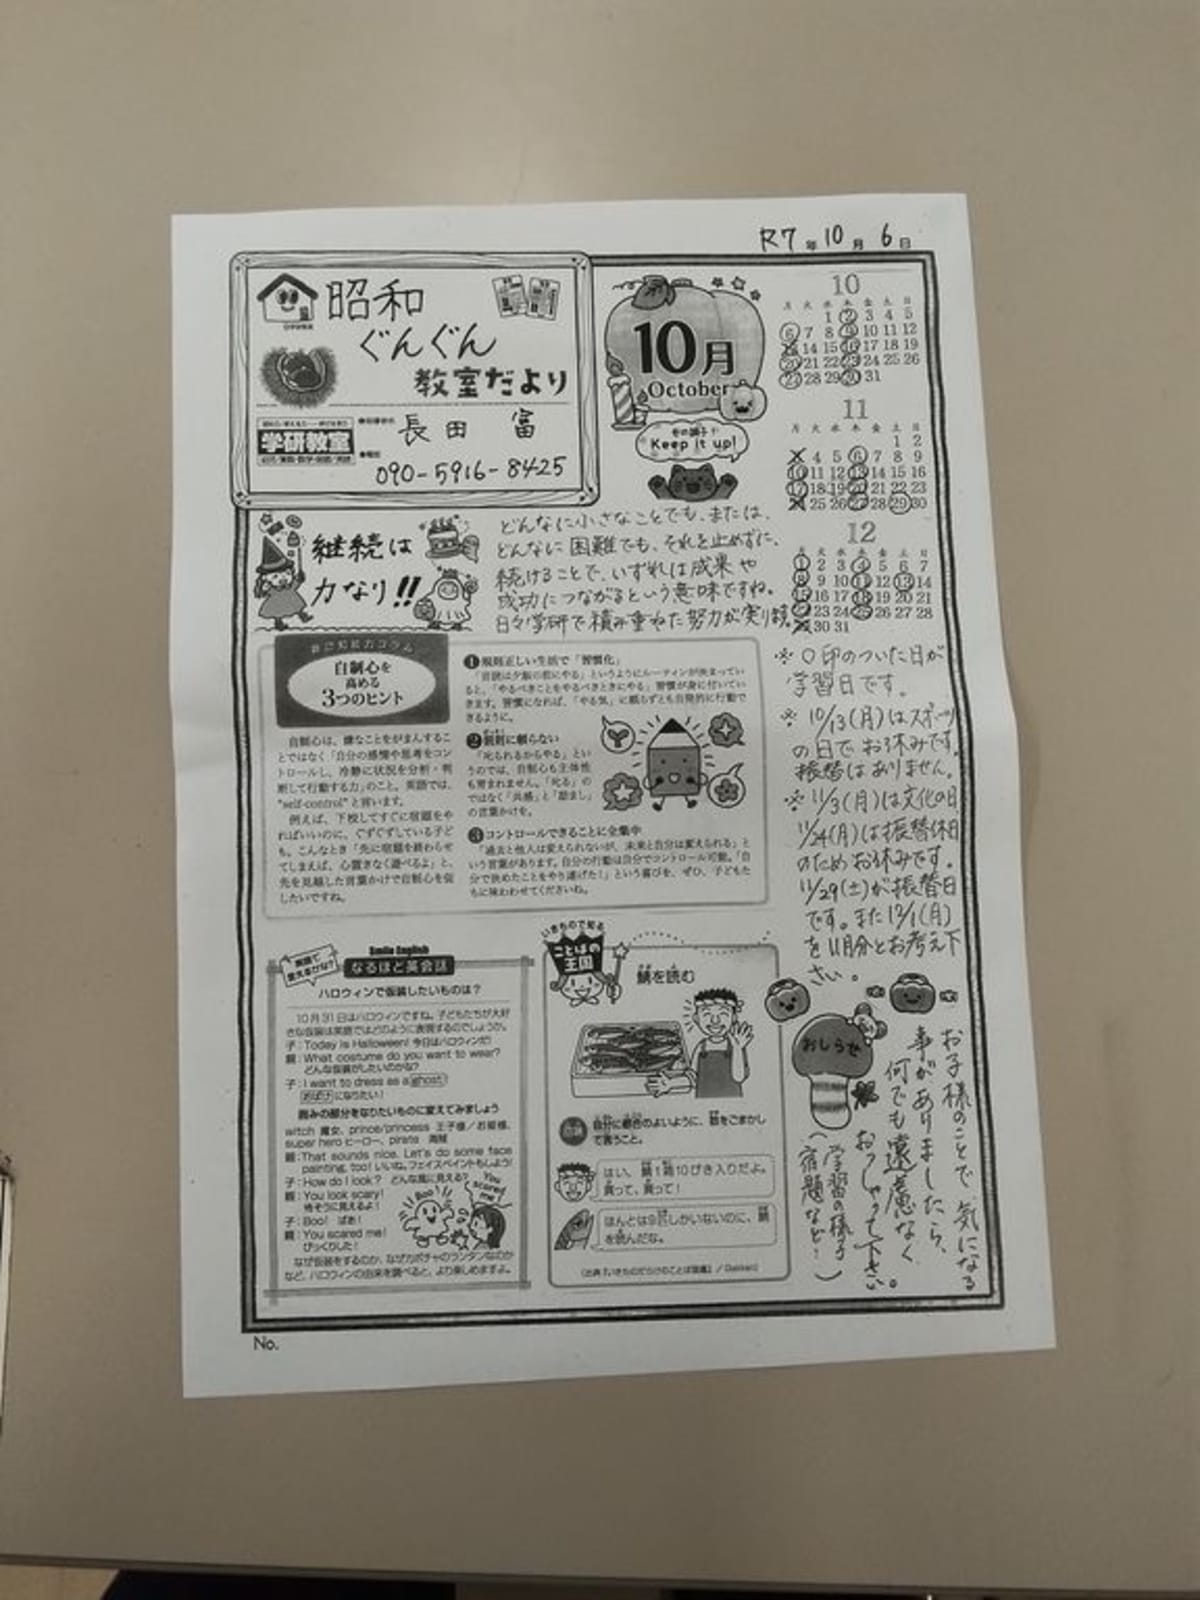 R7年10月6日
昭和
ぐんぐん
教室だより
学研教室
長田 富
090-5916-8425
10月
October
その調子!
Keep it up!
10
月 火 水 木 金 土 日
1 2 3 4 5
6 7 8 9 10 11 12
14 15 16 17 18 19
20 21 22 23 24 25 26
27 28 29 30 31
11
月 火 水 木 金 土 日
1 2
4 5 6 7 8 9
10 11 12 13 14 15 16
17 18 19 20 21 22 23
25 26 27 28 29 30
12
月 火 水 木 金 土 日
1 2 3 4 5 6 7
8 9 10 11 12 13 14
15 16 17 18 19 20 21
22 23 24 25 26 27 28
30 31
継続は
力なり!!
どんなに小さなことでも、または、
どんなに困難でも、それを止めずに、
続けることで、いずれは成果や
成功につながるという意味ですね。
日々学研で積み重ねた努力が実ります。
※ ○印のついた日が
学習日です。
※ 10/13(月)はスポーツ
の日でお休みです。
振替はありません。
※ 11/3(月)は文化の日
11/24(月)は振替休日
のためお休みです。
11/29(土)が振替日
です。また12/1(月)
を11月分とお考え下
さい。
非認知能力コラム
自制心を
高める
3つのヒント
自制心は、嫌なことをがまんするこ
とではなく「自分の感情や思考をコン
トロールし、冷静に状況を分析・判
断して行動する力」のこと。英語では、
"self-control"と言います。
例えば、下校してすぐに宿題をや
ればいいのに、ぐずぐずしている子ど
も。こんなとき「先に宿題を終わらせ
てしまえば、心置きなく遊べるよ」と、
先を見越した言葉かけで自制心を促
したいですね。
1 規則正しい生活で「習慣化」
「音読は夕飯の前にやる」というようにルーティンが決まってい
ると、「やるべきことをやるべきときにやる」習慣が身に付いてい
きます。習慣になれば、「やる気」に頼らずとも自発的に行動で
きるように。
2 叱責に頼らない
「叱られるからやる」とい
うのでは、自制心も主体性
も育まれません。「叱る」の
ではなく「共感」と「励まし」
の言葉かけを。
3 コントロールできることに全集中
「過去と他人は変えられないが、未来と自分は変えられる」と
いう言葉があります。自分の行動は自分でコントロール可能。「自
分で決めたことをやり遂げた!」という喜びを、ぜひ、子どもた
ちに味わわせてくださいね。
英語で
言えるかな?
Smile English
なるほど英会話
ハロウィンで仮装したいものは?
10月31日はハロウィンですね。子どもたちが大好
きな仮装は英語ではどのように表現するのでしょうか。
子:Today is Halloween! 今日はハロウィンだ!
親:What costume do you want to wear?
どんな仮装がしたいのかな?
子:I want to dress as a ghost!
おばけになりたい!
囲みの部分をなりたいものに変えてみましょう
witch 魔女, prince/princess 王子様/お姫様,
super hero ヒーロー, pirate 海賊
親:That sounds nice. Let's do some face
painting, too! いいね。フェイスペイントもしよう!
子:How do I look? どんな風に見える?
親:You look scary!
怖そうに見えるよ!
子:Boo! ばあ!
親:You scared me!
びっくりした!
Boo!
You scared me!
なぜ仮装をするのか、なぜカボチャのランタンなのか
など、ハロウィンの由来を調べると、より楽しめますよ。
いきもので知る
ことばの
王国
鯖を読む
自分に都合のよいように、数をごまかし
て言うこと。
はい、鯖1箱10ぴき入りだよ。
買って、買って!
ほんとは9匹しかいないのに、鯖
を読んだな。
おしらせ
お子様のことで、気になる
事がありましたら、
何でも遠慮なく
おっしゃって下さい。
(学習の様子
宿題など…)
No.